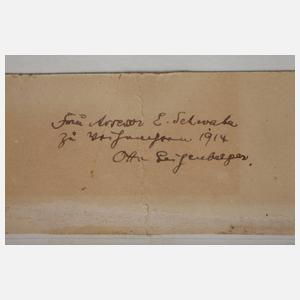 Frau Assessor E. Schwabe
zu Weihnachten 1914
Otto Geigenberger.